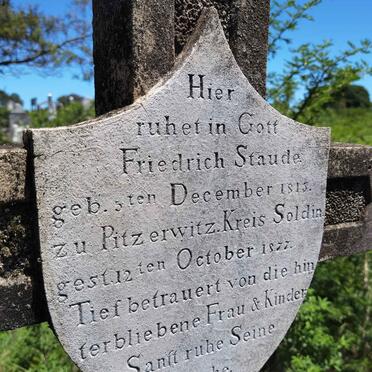 Hier
ruhet in Gott
Friedrich Staude
geb. 5ten December 1815.
zu Pitzerwitz. Kreis Soldin
gest. 12ten October 1877.
Tief betrauert von die hin
terbliebene Frau & Kinder
Sanft ruhe Seine